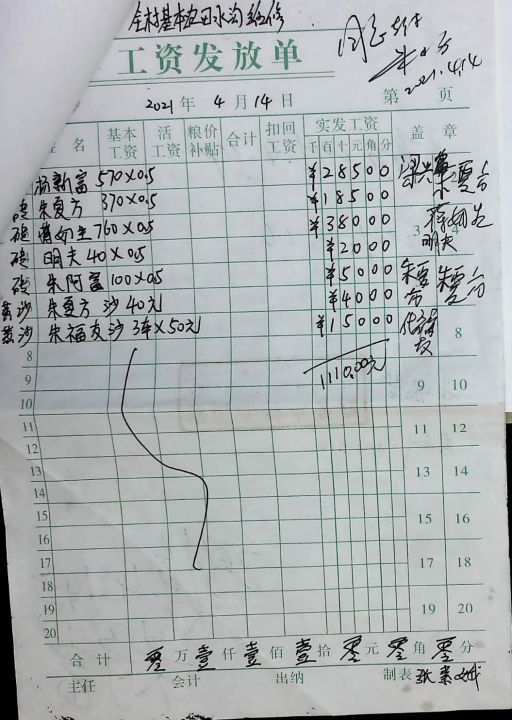 全村基本农田水沟维修
工资发放单
同意
2021.4.14
2021年4月14日 第 页
姓名 基本工资 活工资 粮价补贴 合计 扣回工资 实发工资 千百十元角分 盖章
杨新富 570×0.5 ¥28500
朱夏方 370×0.5 ¥18500
砖 蒋如生 760×0.5 ¥38000 3 4
砖 明夫 40×0.5 ¥2000 明夫
砖 朱阿富 100×0.5 ¥5000
黄沙 朱夏方 沙40元 ¥4000
黄沙 朱福友 沙3车×50元 ¥15000 8
8 1110.00元
9 9 10
10
11 11 12
12
13 13 14
14
15 15 16
16
17 17 18
18
19 19 20
20
合计 零万壹仟壹佰壹拾零元零角零分
主任 会计 出纳 制表